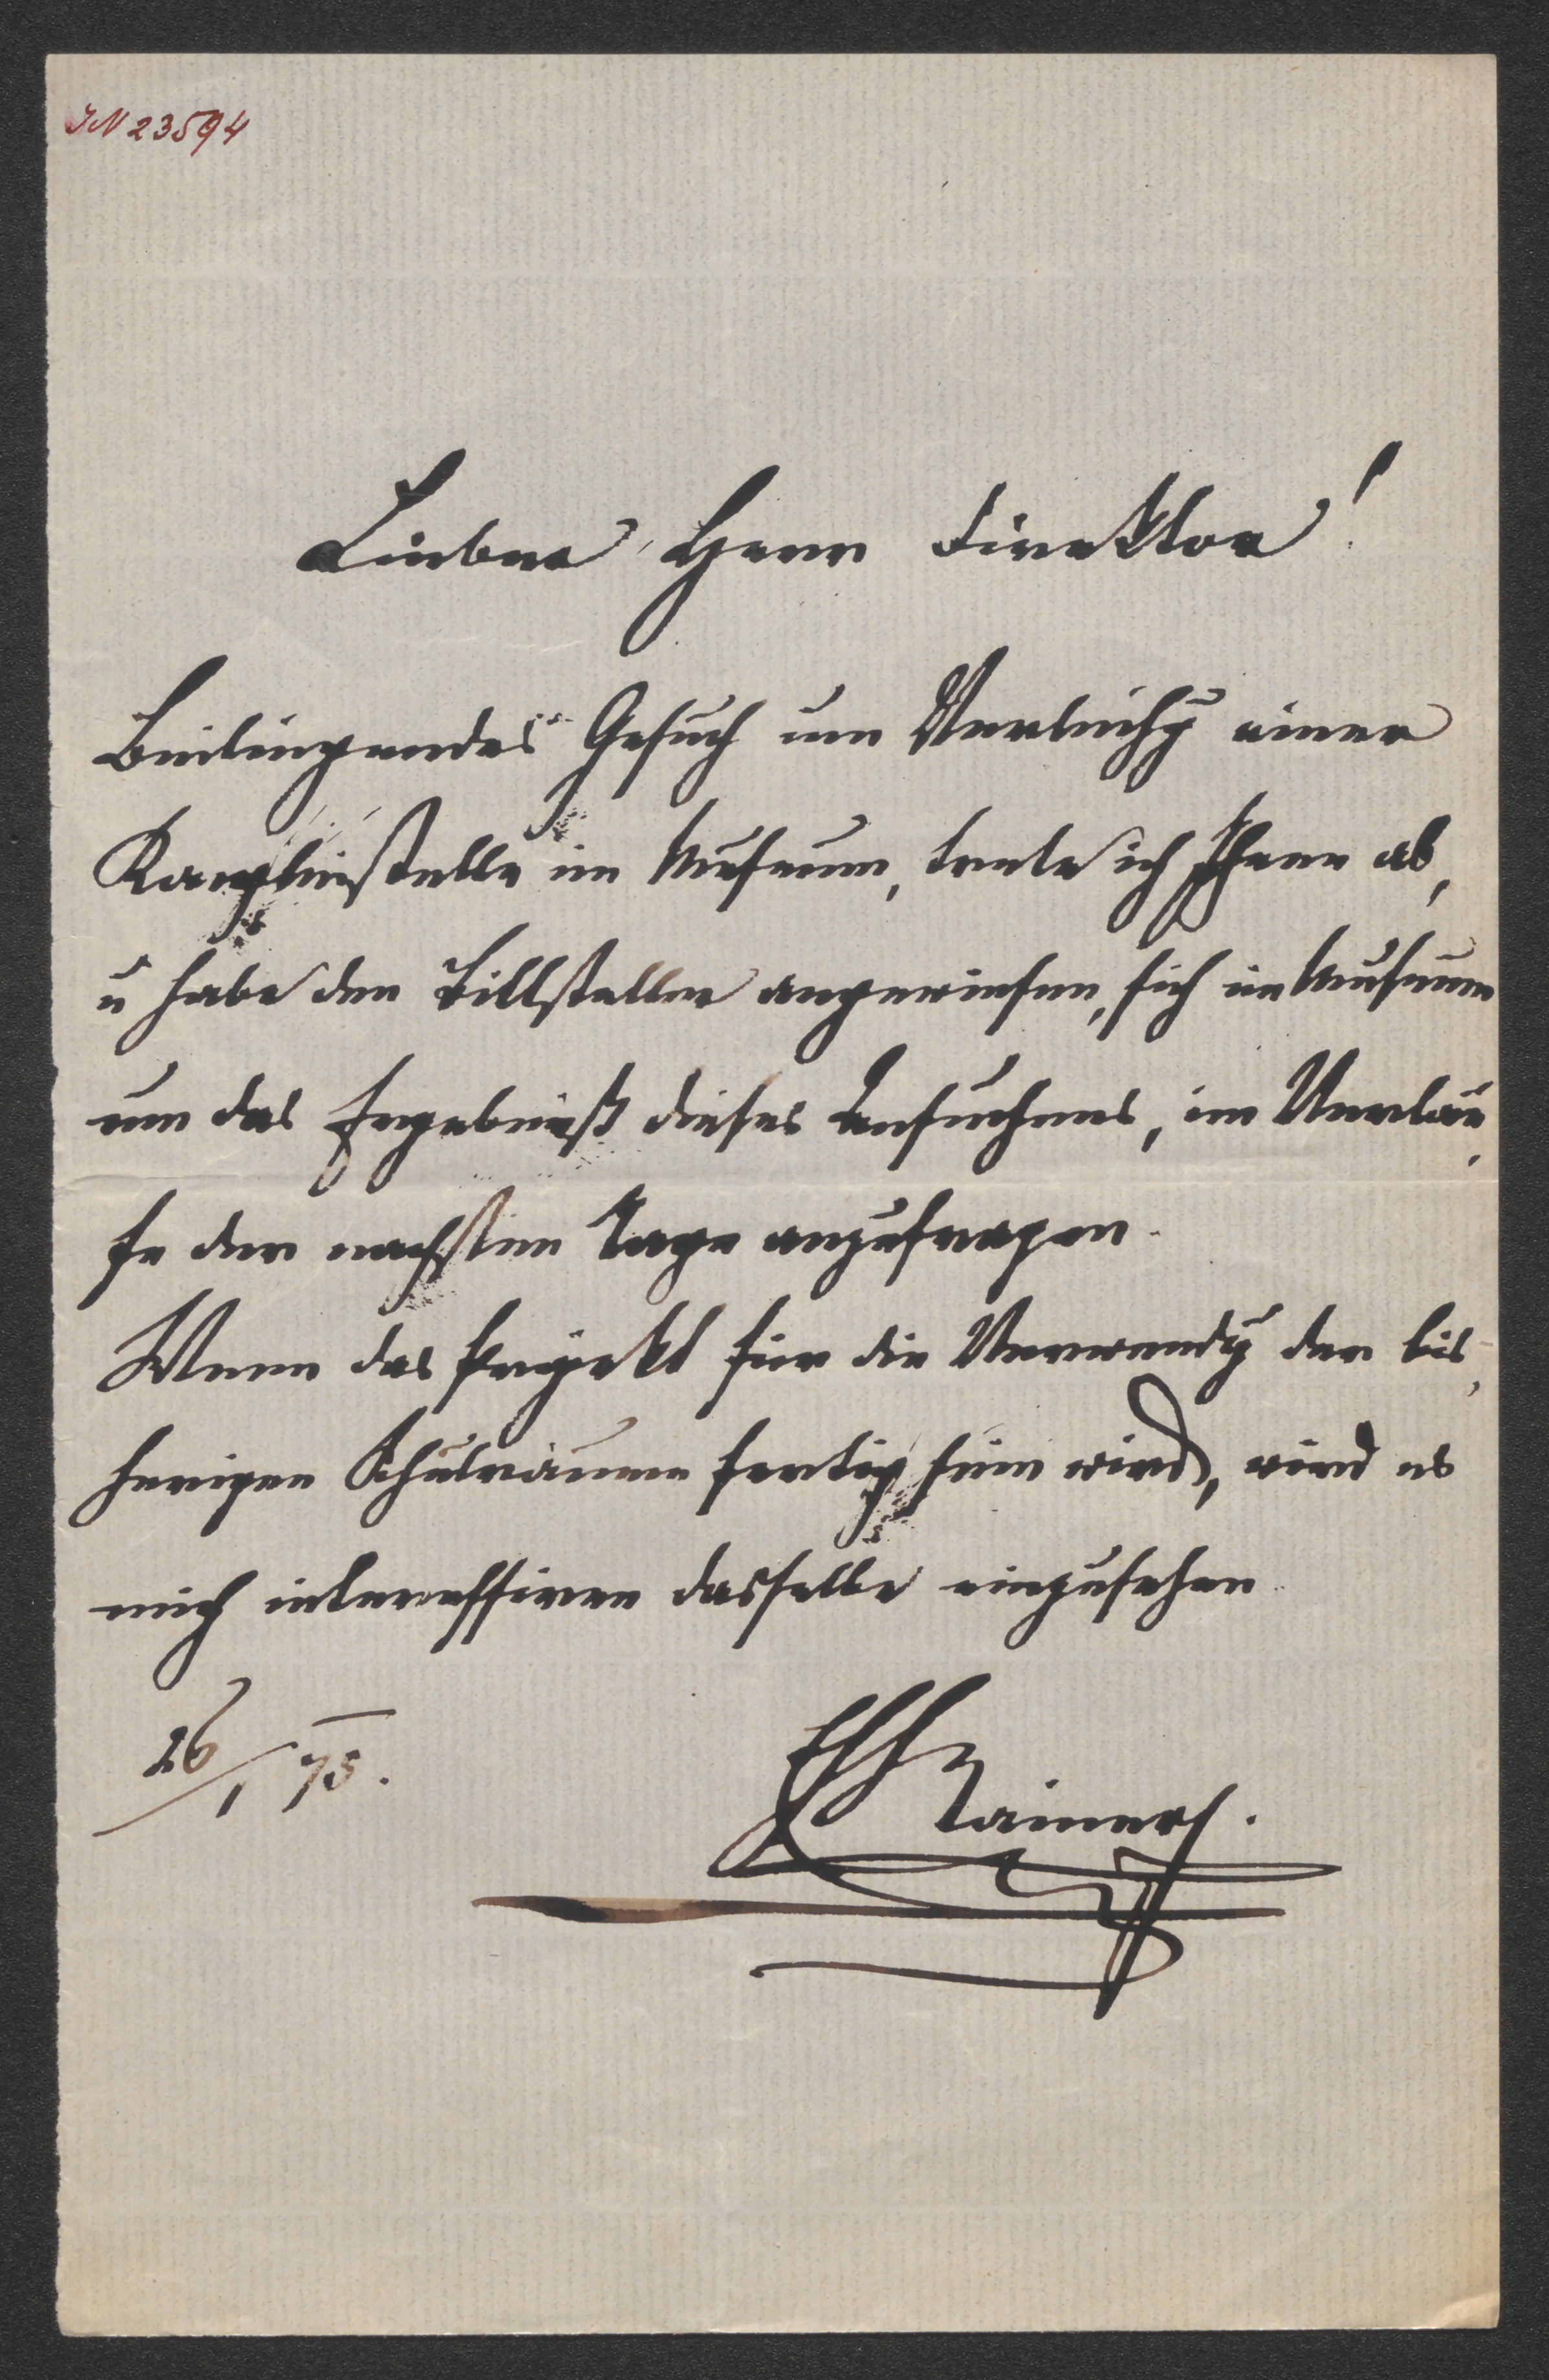 IN 23594
Lieber Herr Direktor!
Beiliegendes Gesuch um Verleihg einer
Kanzleistelle im Museum, trete ich Ihnen ab,
u habe den Bittsteller angewiesen, sich im Museum
um das Ergebniß dieses Ansuchens, im Verlau-
fe der nächsten Tage anzufragen.
Wenn das Projekt für die Verwendg der bis-
herigen Schulräume fertig sein wird, wird es
mich interessiren dasselbe einzusehen.
26/1 75.
EH Rainer